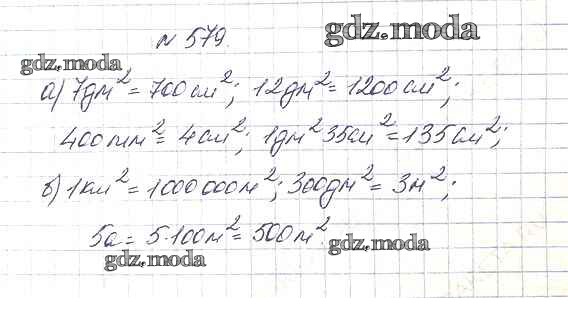 № 579.
gdz.moda
gdz.moda
а) 7дм² = 700см²; 12дм² = 1200см²;
400мм² = 4см²; 1дм² 35см² = 135см²;
б) 1км² = 1000 000м²; 300дм² = 3м²;
5а = 5·100м² = 500м².
gdz.moda
gdz.moda